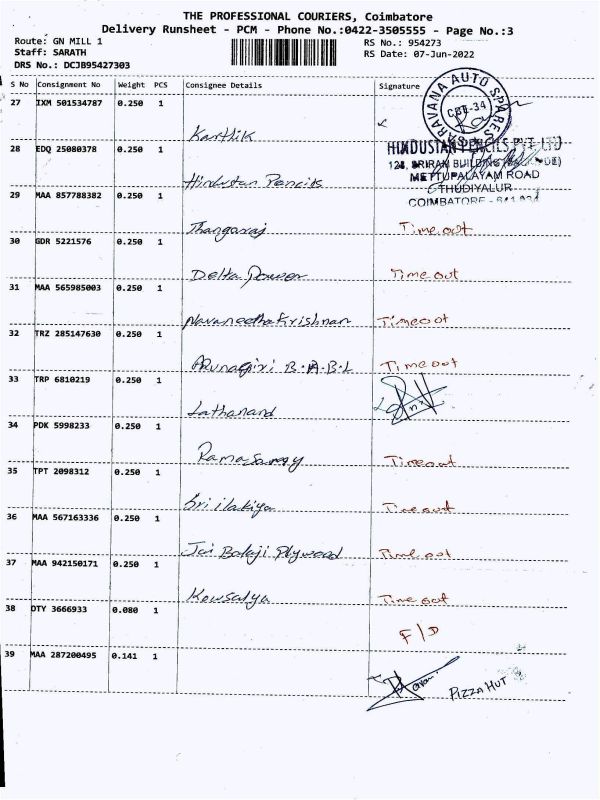 THE PROFESSIONAL COURIERS, Coimbatore
Delivery Runsheet - PCM - Phone No.:0422-3505555 - Page No.:3
Route: GN MILL 1
RS No.: 954273
Staff: SARATH
RS Date: 07-Jun-2022
DRS No.: DCJB95427303
S No Consignment No Weight PCS Consignee Details Signature
27 IXM 501534787 0.250 1
SARAVANA AUTO SPARES
CBE-34
Karthik
28 EDQ 25080378 0.250 1
HINDUSTAN PENCILS PVT. LTD
128, SRIRAM BUILDING
METTUPALAYAM ROAD
THUDIYALUR
COIMBATORE - 641 034
Hindustan Pencils
29 MAA 857788382 0.250 1
Thangaraj Time out
30 GDR 5221576 0.250 1
Delta Power Time out
31 MAA 565985003 0.250 1
Navaneethakrishnan Timeout
32 TRZ 285147630 0.250 1
Arunagiri B.A.B.L Time out
33 TRP 6810219 0.250 1
Lathanand
34 PDK 5998233 0.250 1
Ramasamy Timeout
35 TPT 2098312 0.250 1
Sri ilakiya Time out
36 MAA 567163336 0.250 1
Jai Balaji Plywood Time out
37 MAA 942150171 0.250 1
Kowsalya Time out
38 OTY 3666933 0.080 1
F/D
39 MAA 287200495 0.141 1
PIZZA HUT